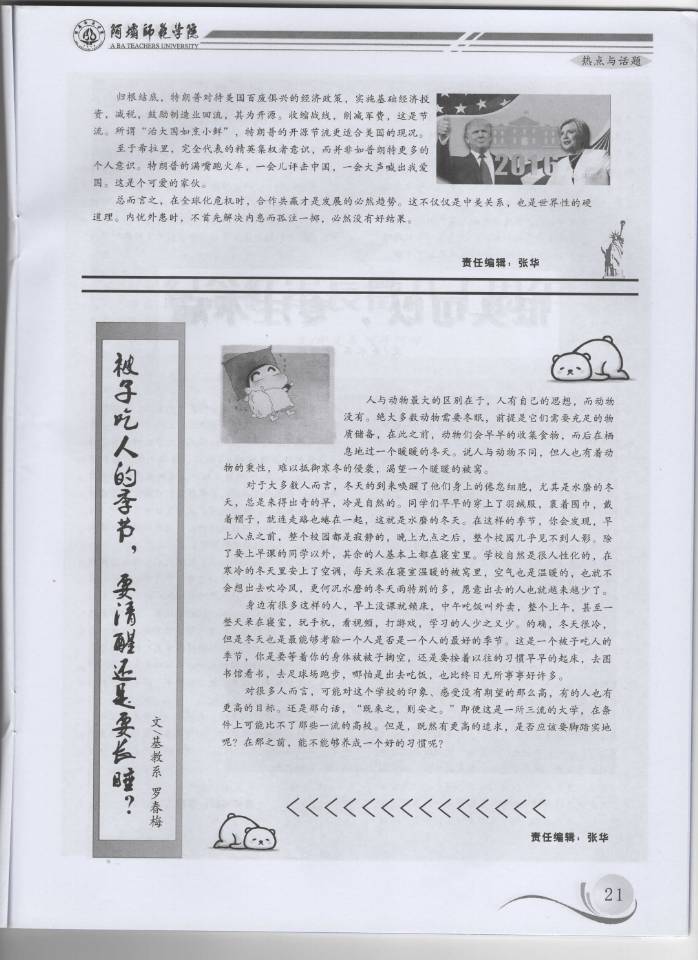 阿坝师范学院
A BA TEACHERS UNIVERSITY
热点与话题
归根结底，特朗普对待美国百废俱兴的经济政策，实施基础经济投
资，减税，鼓励制造业回流，其为开源。收缩战线，削减军费，这是节
流。所谓“治大国如烹小鲜”，特朗普的开源节流更适合美国的现况。
至于希拉里，完全代表的精英集权者意识，而并非如普朗特更多的
个人意识。特朗普的满嘴跑火车，一会儿评击中国，一会大声喊出我爱
国。这是个可爱的家伙。
总而言之，在全球化危机时，合作共赢才是发展的必然趋势。这不仅仅是中美关系，也是世界性的硬
道理。内忧外患时，不首先解决内患而孤注一掷，必然没有好结果。
2016
责任编辑：张华
被子吃人的季节，要清醒还是要长睡？
文\基教系 罗春梅
人与动物最大的区别在于，人有自己的思想，而动物
没有。绝大多数动物需要冬眠，前提是它们需要充足的物
质储备，在此之前，动物们会早早的收集食物，而后在栖
息地过一个暖暖的冬天。说人与动物不同，但人也有着动
物的秉性，难以抵御寒冬的侵袭，渴望一个暖暖的被窝。
对于大多数人而言，冬天的到来唤醒了他们身上的倦怠细胞，尤其是水磨的冬
天，总是来得出奇的早，冷是自然的。同学们早早的穿上了羽绒服，裹着围巾，戴
着帽子，就连走路也蜷在一起，这就是水磨的冬天。在这样的季节，你会发现，早
上八点之前，整个校园都是寂静的，晚上九点之后，整个校园几乎见不到人影。除
了要上早课的同学以外，其余的人基本上都在寝室里。学校自然是很人性化的，在
寒冷的冬天里安上了空调，每天呆在寝室温暖的被窝里，空气也是温暖的，也就不
会想出去吹冷风，更何况水磨的冬天雨特别的多，愿意出去的人也就越来越少了。
身边有很多这样的人，早上没课就赖床，中午吃饭叫外卖，整个上午，甚至一
整天呆在寝室，玩手机，看视频，打游戏，学习的人少之又少。的确，冬天很冷，
但是冬天也是最能够考验一个人是否是一个人的最好的季节。这是一个被子吃人的
季节，你是要等着你的身体被被子掏空，还是要按着以往的习惯早早的起床，去图
书馆看书，去足球场跑步，哪怕是出去吃饭，也比终日无所事事好许多。
对很多人而言，可能对这个学校的印象、感受没有期望的那么高，有的人也有
更高的目标。还是那句话，“既来之，则安之。”即便这是一所三流的大学，在条
件上可能比不了那些一流的高校。但是，既然有更高的追求，是否应该要脚踏实地
呢？在那之前，能不能够养成一个好的习惯呢？
责任编辑：张华
21